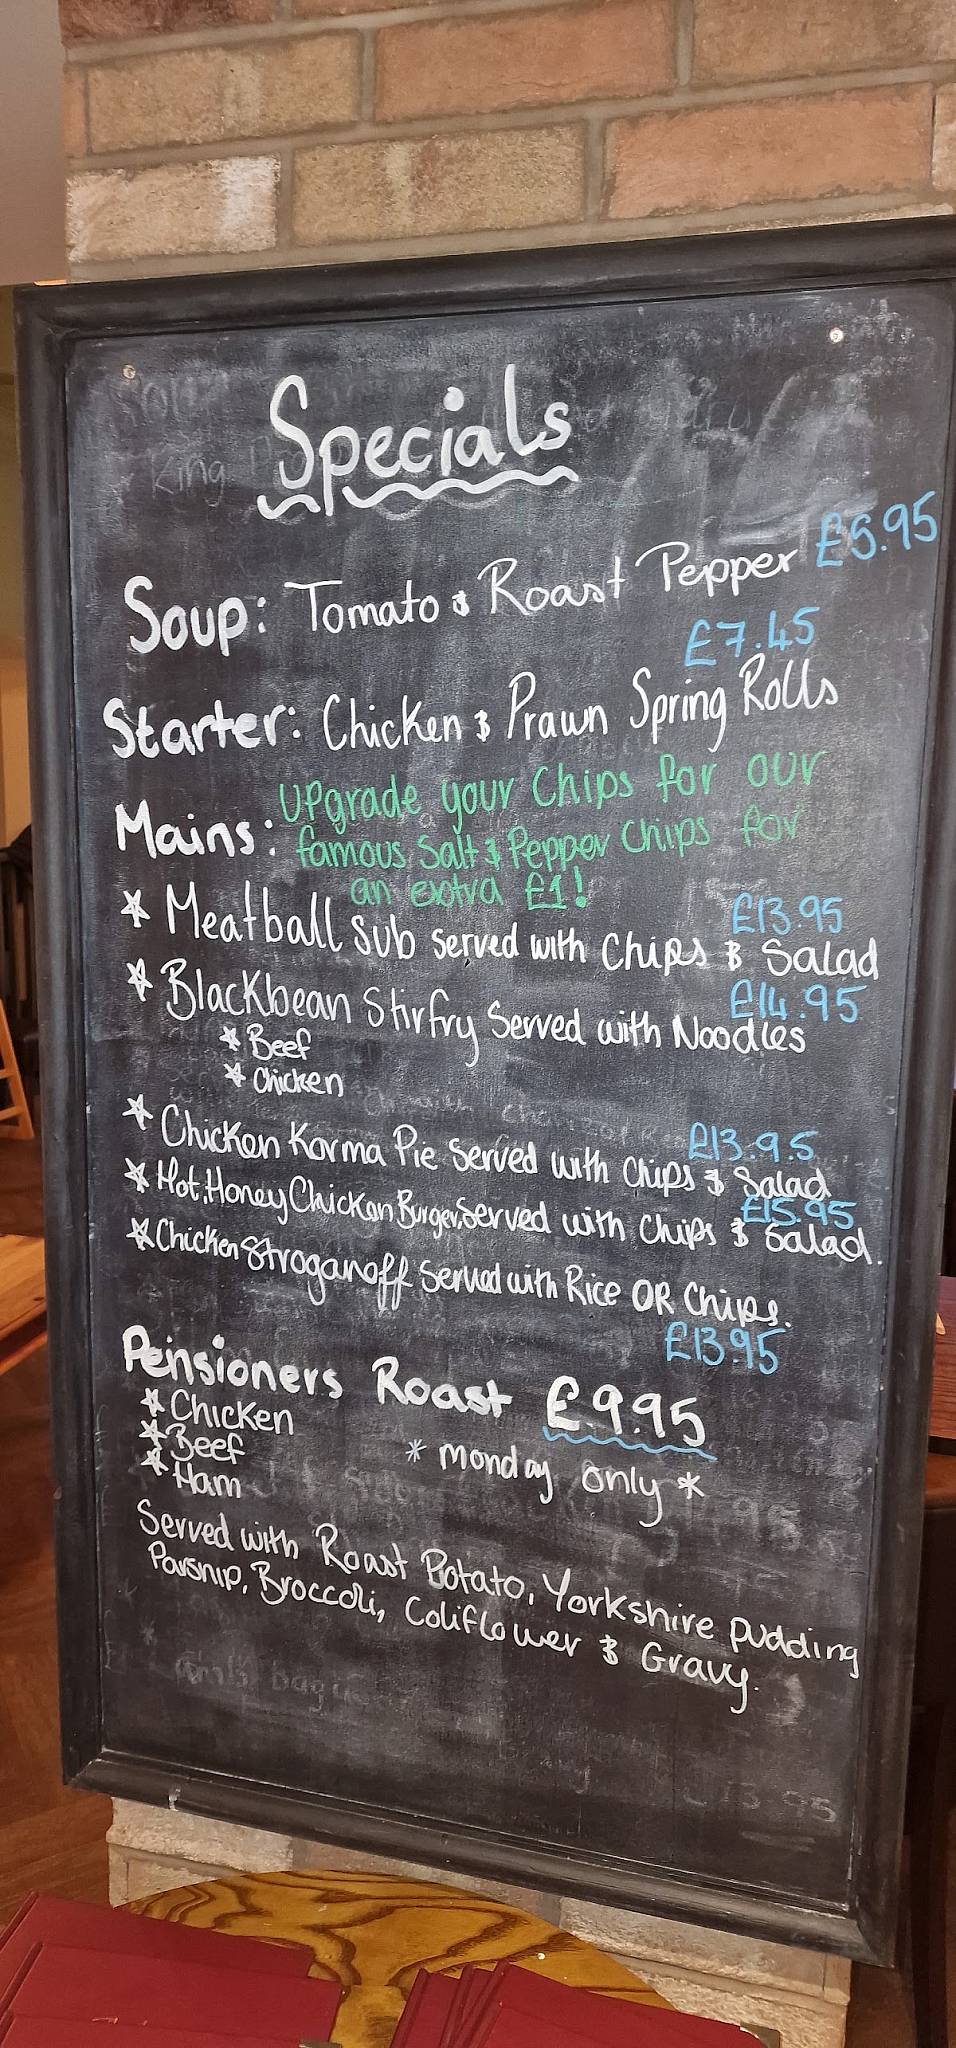 Specials
Soup: Tomato & Roast Pepper £5.95
£7.45
Starter: Chicken & Prawn Spring Rolls
Mains: Upgrade your Chips for our
famous Salt & Pepper Chips for
an extra £1!
£13.95
* Meatball Sub served with Chips & Salad
£14.95
* Blackbean Stirfry Served with Noodles
* Beef
* Chicken
£13.95
* Chicken Korma Pie Served with Chips & Salad
£15.95
* Hot Honey Chicken Burger Served with Chips & Salad.
* Chicken Stroganoff Served with Rice OR Chips.
£13.95
Pensioners Roast £9.95
* Chicken
* Beef
* Monday only *
* Ham
Served with Roast Potato, Yorkshire pudding
Parsnip, Broccoli, Coliflower & Gravy.